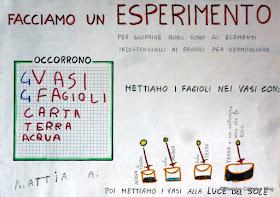 FACCIAMO UN ESPERIMENTO
PER SCOPRIRE QUALI SONO GLI ELEMENTI
INDISPENSABILI AI FAGIOLI PER GERMOGLIARE
OCCORRONO
4 VASI
4 FAGIOLI
CARTA
TERRA
ACQUA
METTIAMO I FAGIOLI NEI VASI CON:
MATTIA A.
POI METTIAMO I VASI ALLA LUCE DEL SOLE